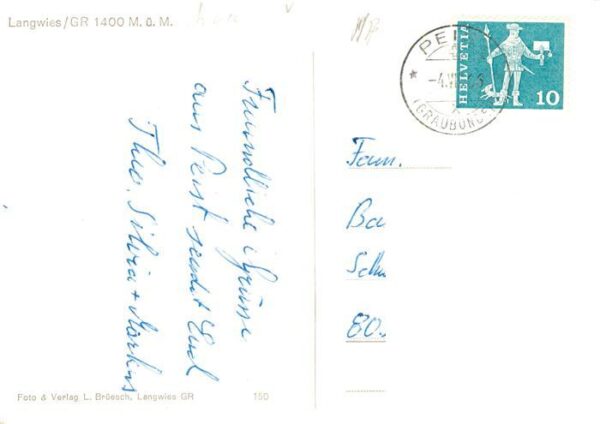 Langwies/GR 1400 M. ü. M.
Freundliche Grüsse
aus Peist sendet Eud
Theo, Silvia + Markus
Foto & Verlag L. Brüesch, Langwies GR
150
PEIST
(GRAUBÜND
HELVETIA
10
Fam.
Ba
Sch
80.